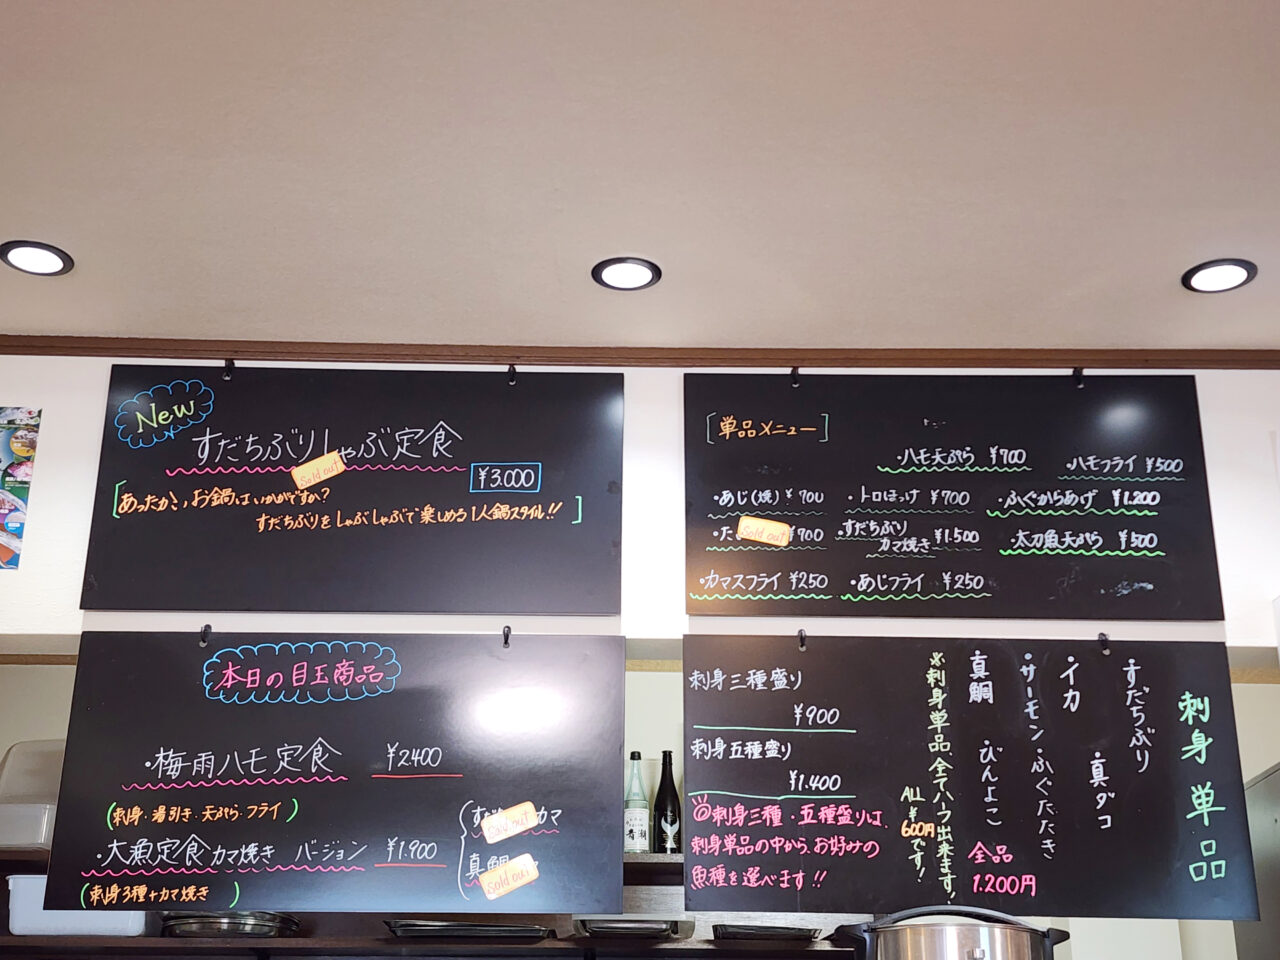 New
すだちぶりしゃぶ定食
Sold out
¥3.000
あったかい、お鍋はいかがですか?
すだちぶりをしゃぶしゃぶで楽しめる1人鍋スタイル!!
[単品メニュー]
・ハモ天ぷら ¥700
・ハモフライ ¥500
・あじ(焼) ¥700
・トロほっけ ¥700
・ふぐからあげ ¥1.200
・た
Sold out
¥700
・すだちぶり
カマ焼き ¥1.500
・太刀魚天ぷら ¥500
・カマスフライ ¥250
・あじフライ ¥250
本日の目玉商品
・梅雨ハモ定食 ¥2400
(刺身・湯引き・天ぷら・フライ)
・大漁定食カマ焼き バージョン ¥1.900
(刺身3種+カマ焼き)
すだ
カマ
Sold out
真鯛
Sold out
刺身 単品
・すだちぶり
・真ダコ
・イカ
・サーモン
・ふぐたたき
・真鯛
・びんよこ
全品
1.200円
※刺身単品、全てハーフ出来ます!
ALL
¥
600円
です!
刺身三種盛り
¥900
刺身五種盛り
¥1.400
◎刺身三種・五種盛りは、
刺身単品の中から、お好みの
魚種を選べます!!